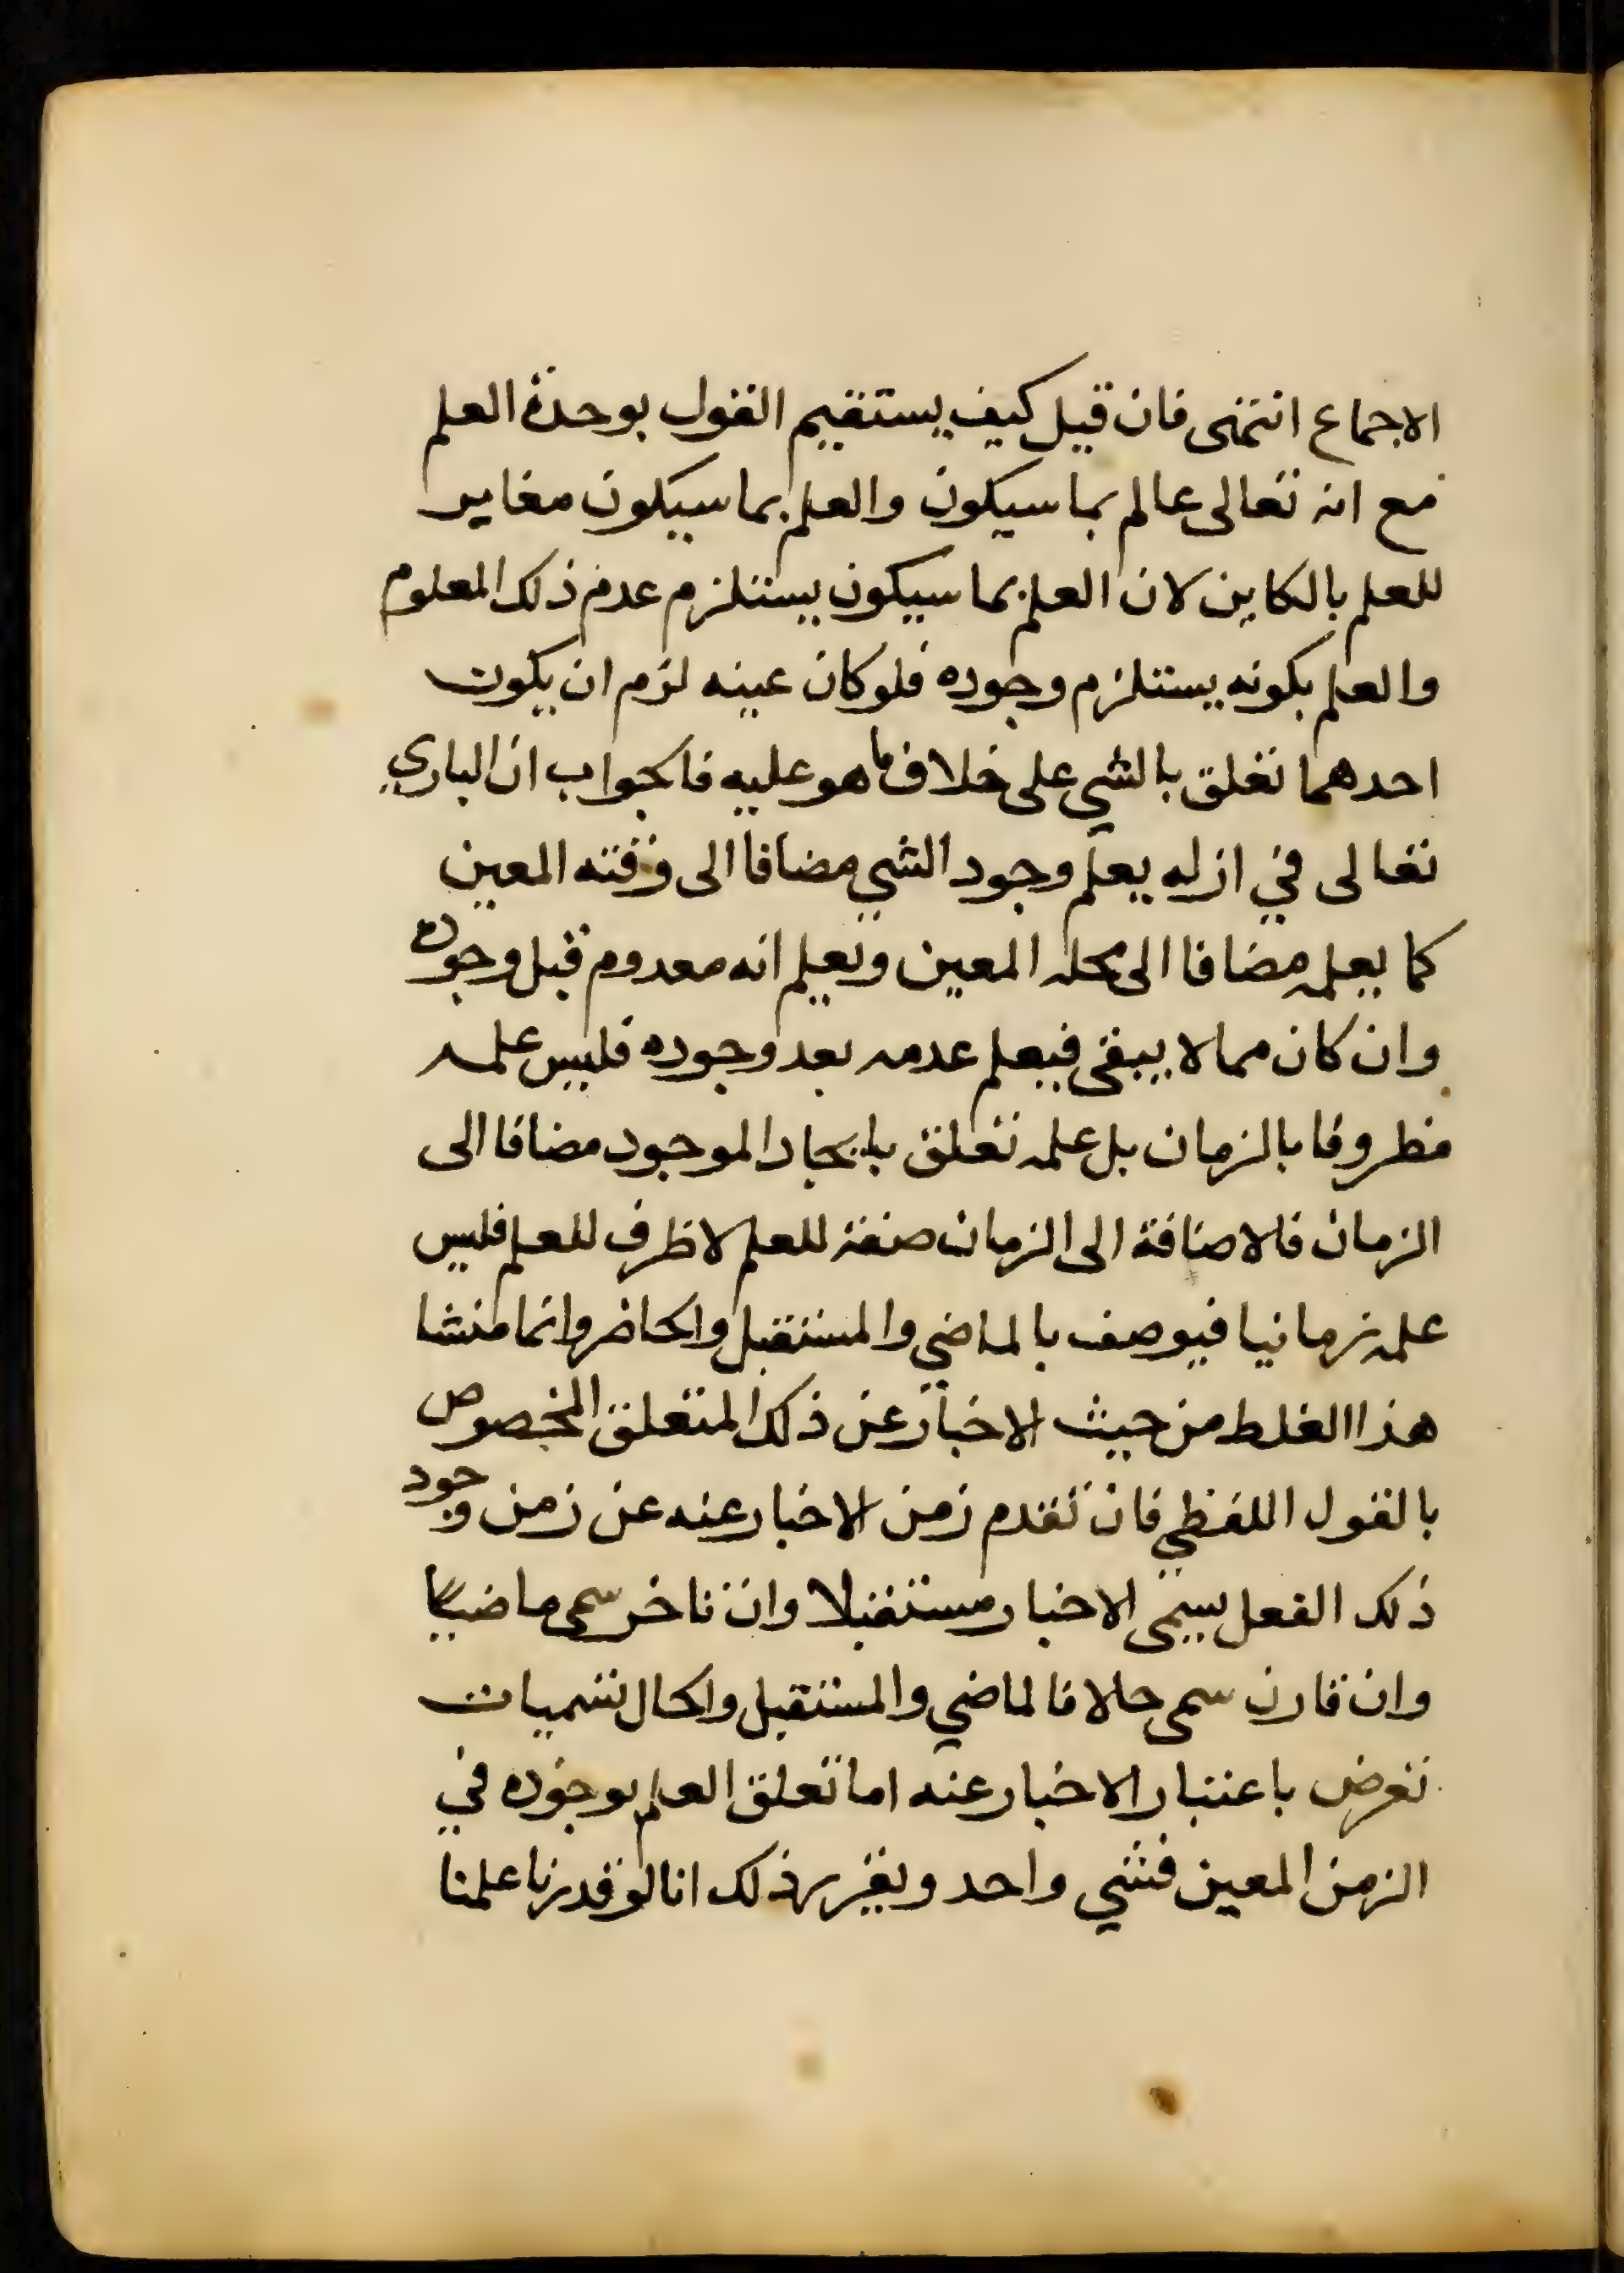 الاجماع انتهى فان قيل كيف يستقيم القول بوحدة العلم
مع انه تعالى عالم بما سيكون والعلم بما سيكون مغاير
للعلم بالكاين لان العلم بما سيكون يستلزم عدم ذلك المعلوم
والعلم بكونه يستلزم وجوده فلو كان عينه لزم ان يكون
احدهما تعلق بالشي على خلاف ما هو عليه فالجواب ان الباري
تعالى في ازله يعلم وجود الشي مضافا الى وقته المعين
كما يعلمه مضافا الى محله المعين ويعلم انه معدوم قبل وجوده
وان كان مما لا يبقى فيعلم عدمه بعد وجوده فليس علمه
مظروفا بالزمان بل علمه تعلق بايجاد الموجود مضافا الى
الزمان فالاضافة الى الزمان صفة للعلم لا ظرف للعلم فليس
علمه زمانيا فيوصف بالماضي والمستقبل والحاضر وانما منشا
هذا الغلط من حيث الاخبار عن ذلك المتعلق المخصوص
بالقول اللفظي فان تقدم زمن الاخبار عنه عن زمن وجود
ذلك الفعل يسمى الاخبار مستقبلا وان تاخر سمى ماضيا
وان قارن سمى حالا فالماضي والمستقبل والحال تسميات
تعرض باعتبار الاخبار عنه اما تعلق العلم بوجوده في
الزمن المعين فشي واحد ويقرر ذلك انا لو قدرنا علمنا